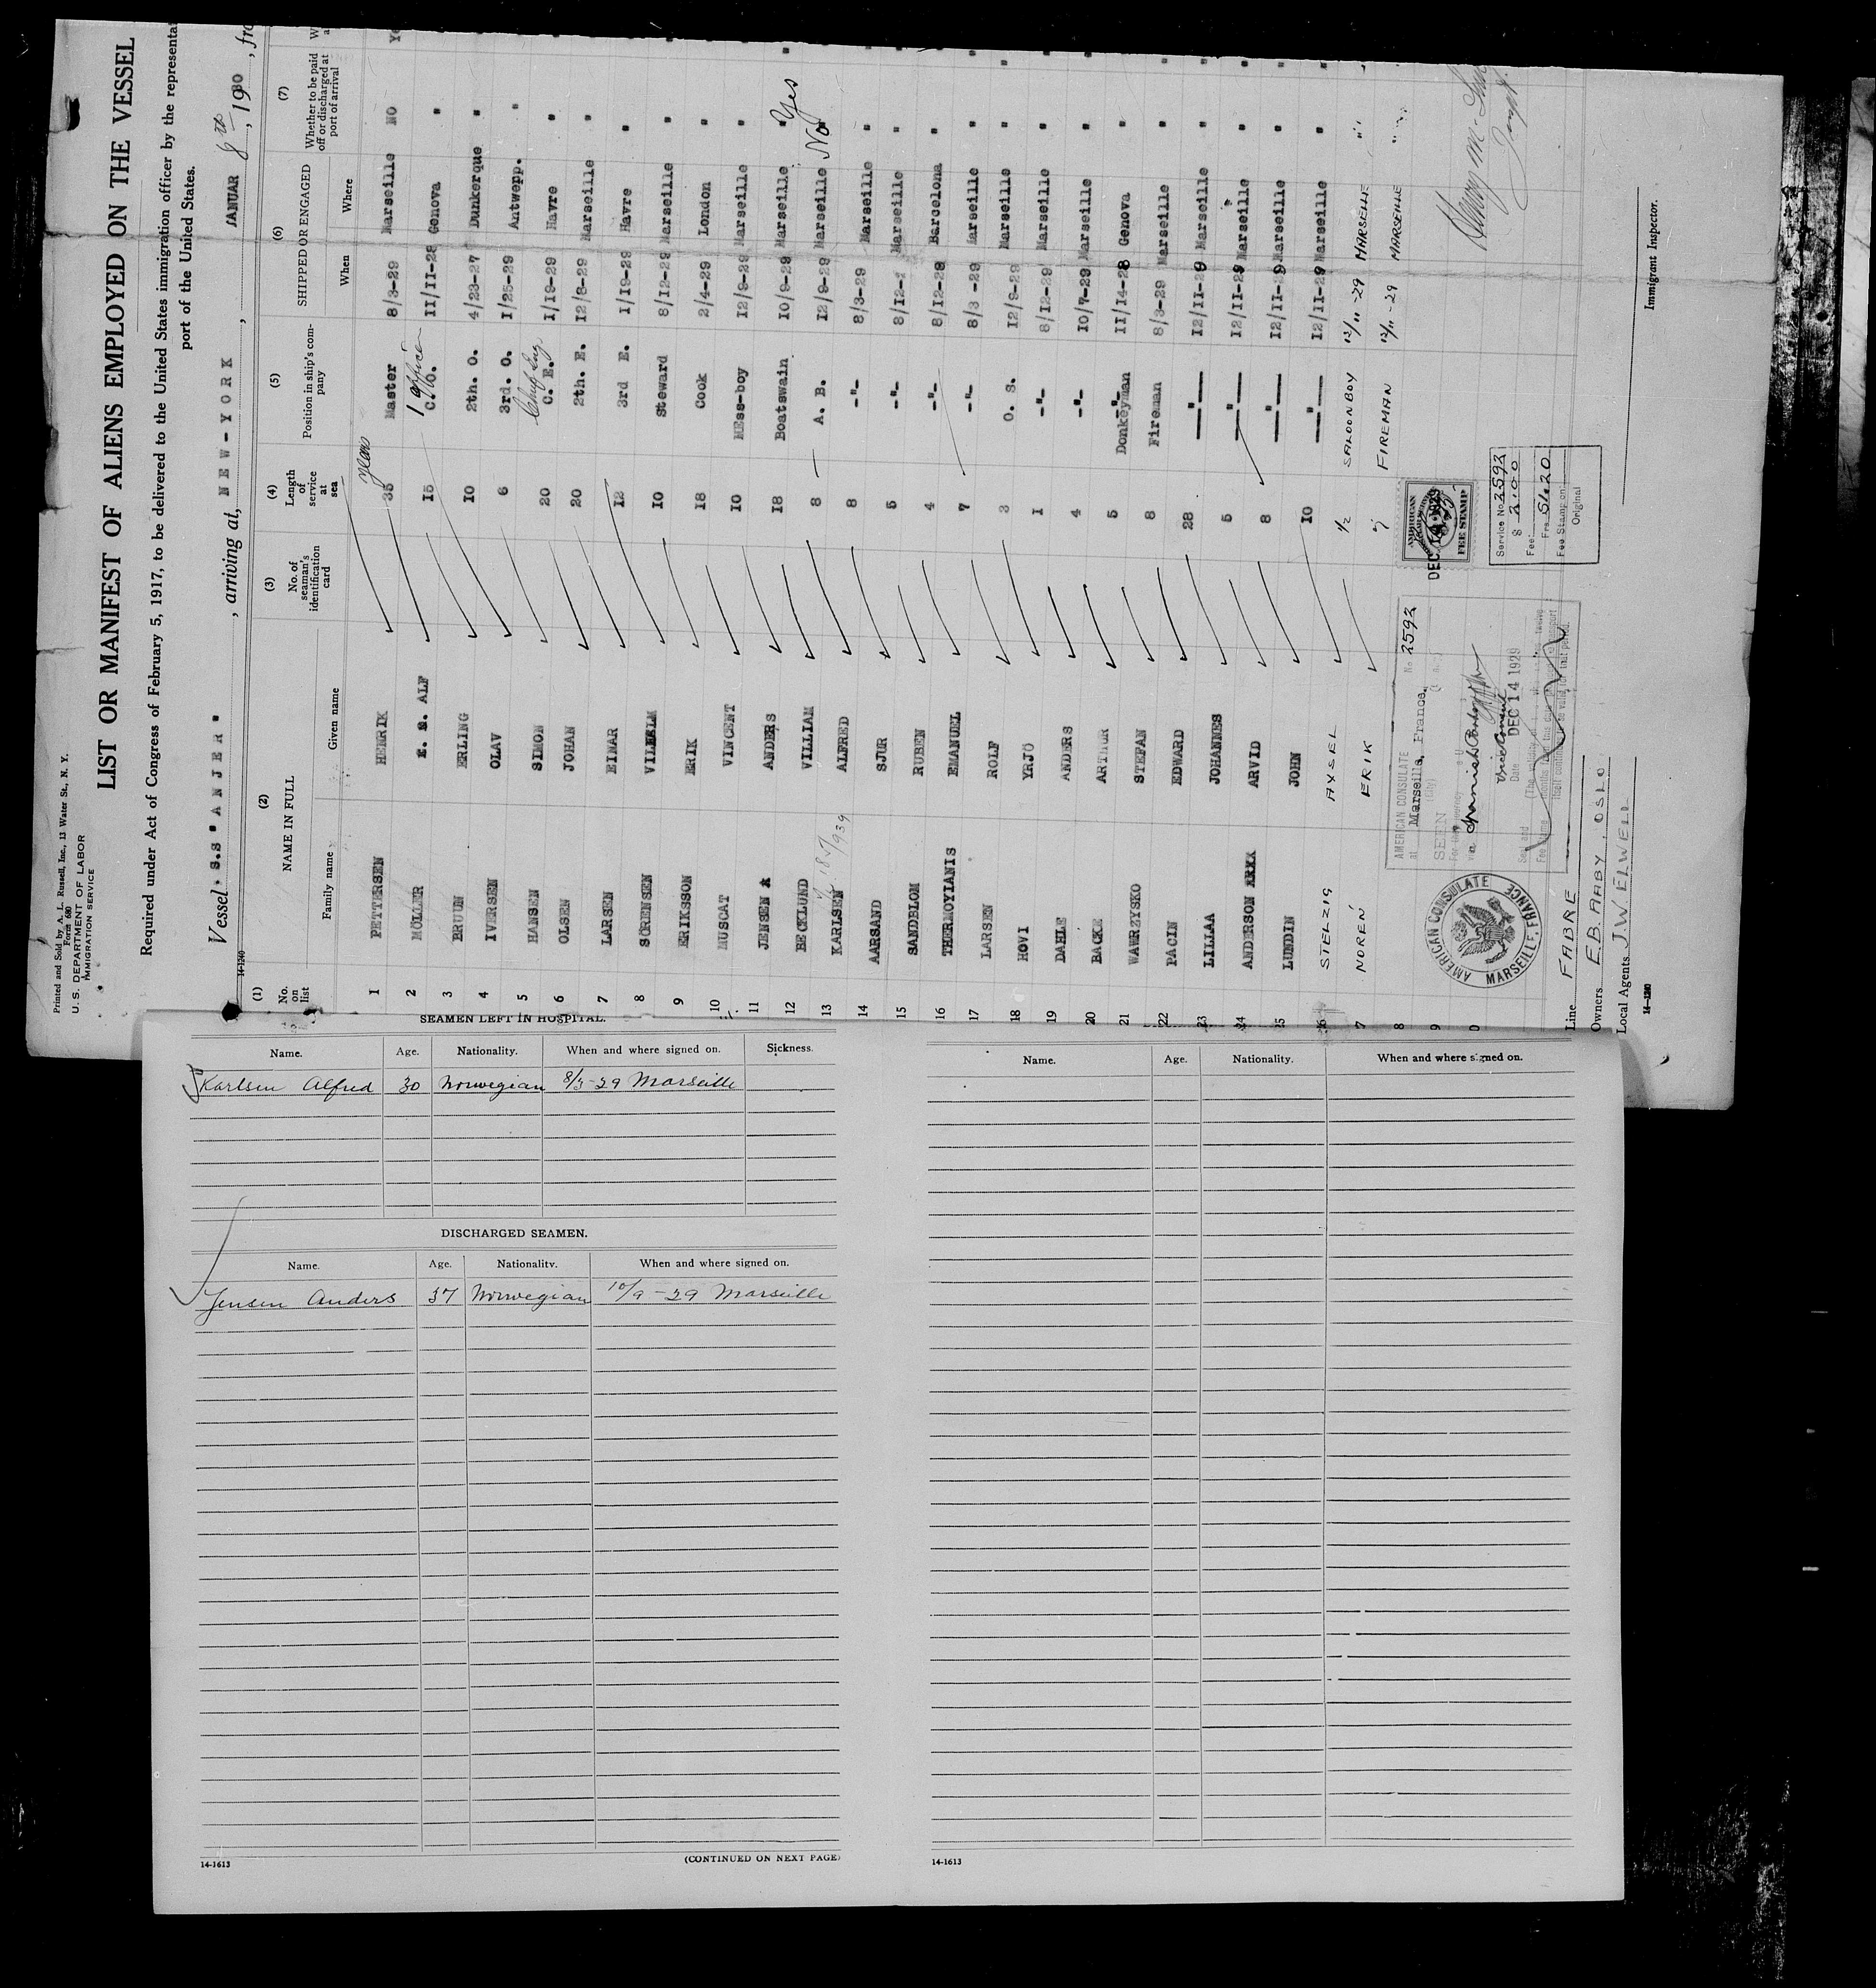 Printed and Sold by A. L. Russell, Inc., 13 Water St., N. Y.
Form 680
U. S. DEPARTMENT OF LABOR
IMMIGRATION SERVICE
LIST OR MANIFEST OF ALIENS EMPLOYED ON THE VESSEL
Required under Act of Congress of February 5, 1917, to be delivered to the United States immigration officer by the
port of the United States.
Vessel S.S "ANJER", arriving at, NEW-YORK, JANUAR 8th, 1930
14-1240
(1) (2) (3) (4) (5) (6) (7)
No. on list NAME IN FULL No. of seaman's identification card Length of service at sea Position in ship's company SHIPPED OR ENGAGED Whether to be paid off or discharged at port of arrival
Family name Given name When Where
years
1 PETTERSEN HENRIK 35 Master 8/3-29 Marseille NO
2 MÖLLER ALF 15 C. O. 1 Office 11/11-28 Genova "
3 BRUUN ERLING 10 2th. O. 4/23-27 Dunkerque "
4 IVERSEN OLAV 6 3rd. O. 1/25-29 Antwepp. "
5 HANSEN SIMON 20 C. E. Chief Eng 1/19-29 Havre "
6 OLSEN JOHAN 20 2th. E. 12/8-29 Marseille "
7 LARSEN EINAR 12 3rd E. 1/19-29 Havre "
8 SÖRENSEN VILHELM 10 Steward 8/12-29 Marseille "
9 ERIKSSON ERIK 18 Cook 2/4-29 London "
10 MUSCAT VINCENT 10 MEss-boy 12/9-29 Marseille "
11 JENSEN ANDERS 18 Boatswain 10/9-29 Marseille " Yes
12 BECKLUND VILLIAM 8 A. B. 12/9-29 Marseille No
13 KARLSEN ALFRED 8 -"- 8/3-29 Marseille "
14 AARSAND SJUR 5 -"- 8/12- Marseille "
15 SANDBLOM RUBEN 4 -"- 8/12-28 Barcelona "
16 THERMOYIANIS EMANUEL 7 -"- 8/3-29 Marseille "
17 LARSEN ROLF 3 O. S. 12/9-29 Marseille "
18 HOVI YRJÖ 1 -"- 8/12-29 Marseille "
19 DAHLE ANDERS 4 -"- 10/7-29 Marseille "
20 BACKE ARTHUR 5 -"- 11/14-28 Genova "
21 WAWRZYSKO STEFAN 8 Donkeyman 8/3-29 Marseille "
22 PACIN EDWARD 28 Fireman 12/11-29 Marseille "
23 LILLAA JOHANNES 5 " 12/11-29 Marseille "
24 ANDERSON ARVID 8 " 12/11-29 Marseille "
25 LUNDIN JOHN 10 " 12/11-29 Marseille "
26 STELZIG AXSEL 1/2 SALOONBOY 12/11-29 MARSEILLE "
7 NOREN ERIK 7 FIREMAN 12/11-29 MARSEILLE "
8
9
0
AMERICAN CONSULATE
MARSEILLE, FRANCE
AMERICAN CONSULATE
at Marseille, France.
No 2592
SEEN
For the journey
via Spanish
Vice Consul
Date DEC 14 1929
AMERICAN
FEE STAMP
DEC 14 1929
Service No 2592
Fee: $ 2.00
Frs 51.20
Fee Stamp on
Original
Line FABRE
Owners E.B. AABY, OSLO
Local Agents J.W ELWELL
14-1240
Immigrant Inspector.
SEAMEN LEFT IN HOSPITAL.
Name. Age. Nationality. When and where signed on. Sickness.
Karlsen Alfred 30 Norwegian 8/3-29 Marseille
DISCHARGED SEAMEN.
Name. Age. Nationality. When and where signed on.
Jensen Anders 37 Norwegian 10/9-29 Marseille
14-1613
(CONTINUED ON NEXT PAGE)
Name. Age. Nationality. When and where signed on.
14-1613